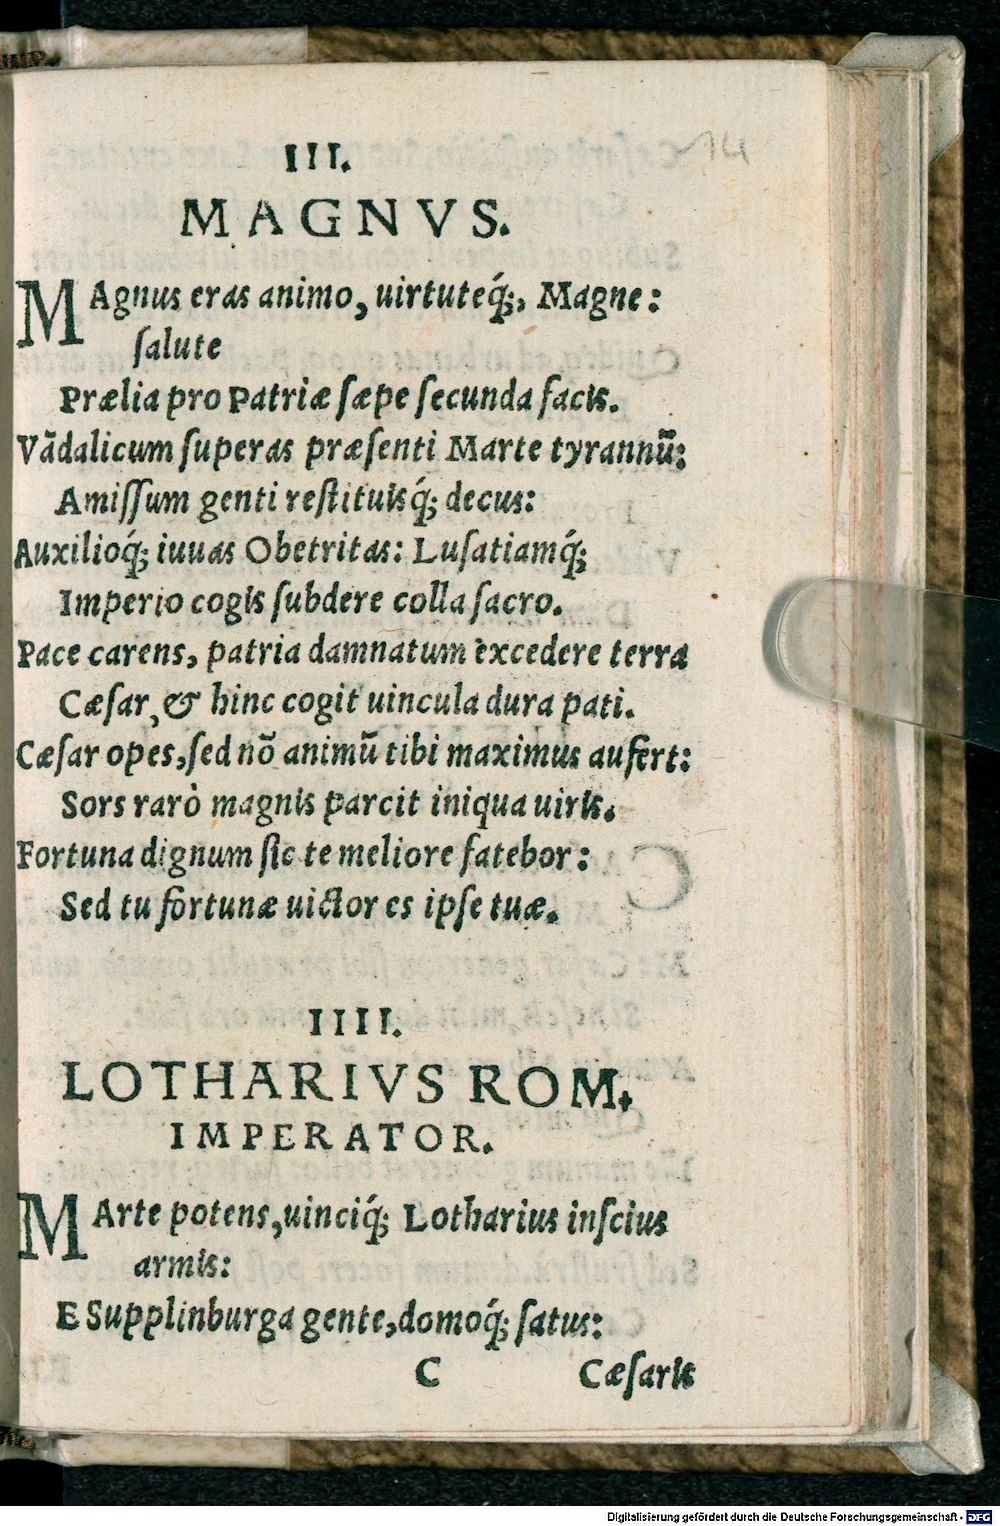 14
III.
MAGNVS.
MAgnus eras animo, uirtuteq́;, Magne:
ſalute
Prælia pro patriæ ſæpe ſecunda facis.
Vādalicum ſuperas præſenti Marte tyrannū:
Amiſſum genti reſtituisq́; decus:
Auxilioq́; iuuas Obetritas: Luſatiamq́;
Imperio cogis ſubdere colla ſacro.
Pace carens, patria damnatum excedere terra
Cæſar, & hinc cogit uincula dura pati.
Cæſar opes, ſed nō animū tibi maximus aufert:
Sors rarò magnis parcit iniqua uiris.
Fortuna dignum ſic te meliore fatebor:
Sed tu fortunæ uictor es ipſe tuæ.
IIII.
LOTHARIVS ROM.
IMPERATOR.
MArte potens, uinciq́; Lotharius inſcius
armis:
E Supplinburga gente, domoq́; ſatus:
C Cæſaris
Digitalisierung gefördert durch die Deutsche Forschungsgemeinschaft - DFG